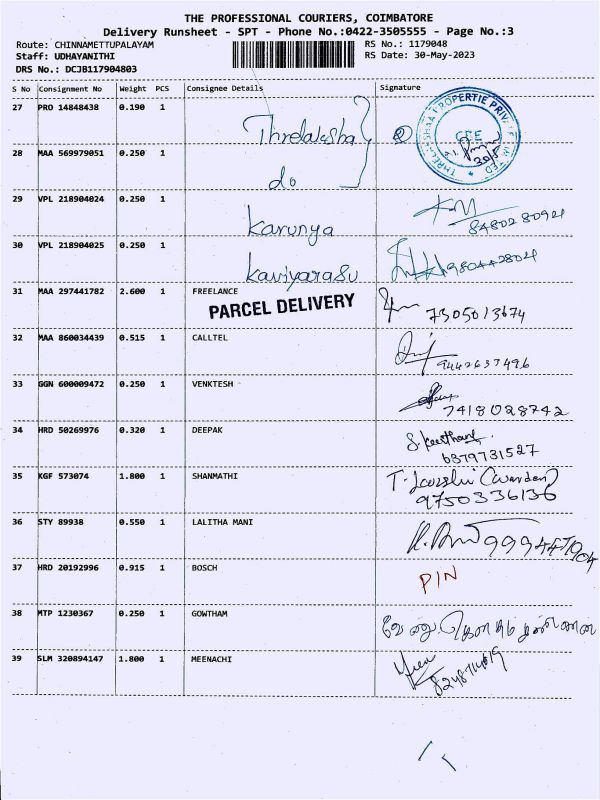 THE PROFESSIONAL COURIERS, COIMBATORE
Delivery Runsheet - SPT - Phone No.:0422-3505555 - Page No.:3
Route: CHINNAMETTUPALAYAM RS No.: 1179048
Staff: UDHAYANITHI RS Date: 30-May-2023
DRS No.: DCJB117904803
S No Consignment No Weight PCS Consignee Details Signature
27 PRO 14848438 0.190 1 Threlaksha
28 MAA 569979051 0.250 1 do
29 VPL 218904024 0.250 1 Karunya 8480280924
30 VPL 218904025 0.250 1 Kaviyarasu 9804428024
31 MAA 297441782 2.600 1 FREELANCE 7305013674
PARCEL DELIVERY
32 MAA 860034439 0.515 1 CALLTEL 9442637496
33 GGN 600009472 0.250 1 VENKTESH 7418028742
34 HRD 50269976 0.320 1 DEEPAK S. Keerthana 6379731527
35 KGF 573074 1.800 1 SHANMATHI 9750336136
36 STY 89938 0.550 1 LALITHA MANI
37 HRD 20192996 0.915 1 BOSCH PIN
38 MTP 1230367 0.250 1 GOWTHAM
39 SLM 320894147 1.800 1 MEENACHI